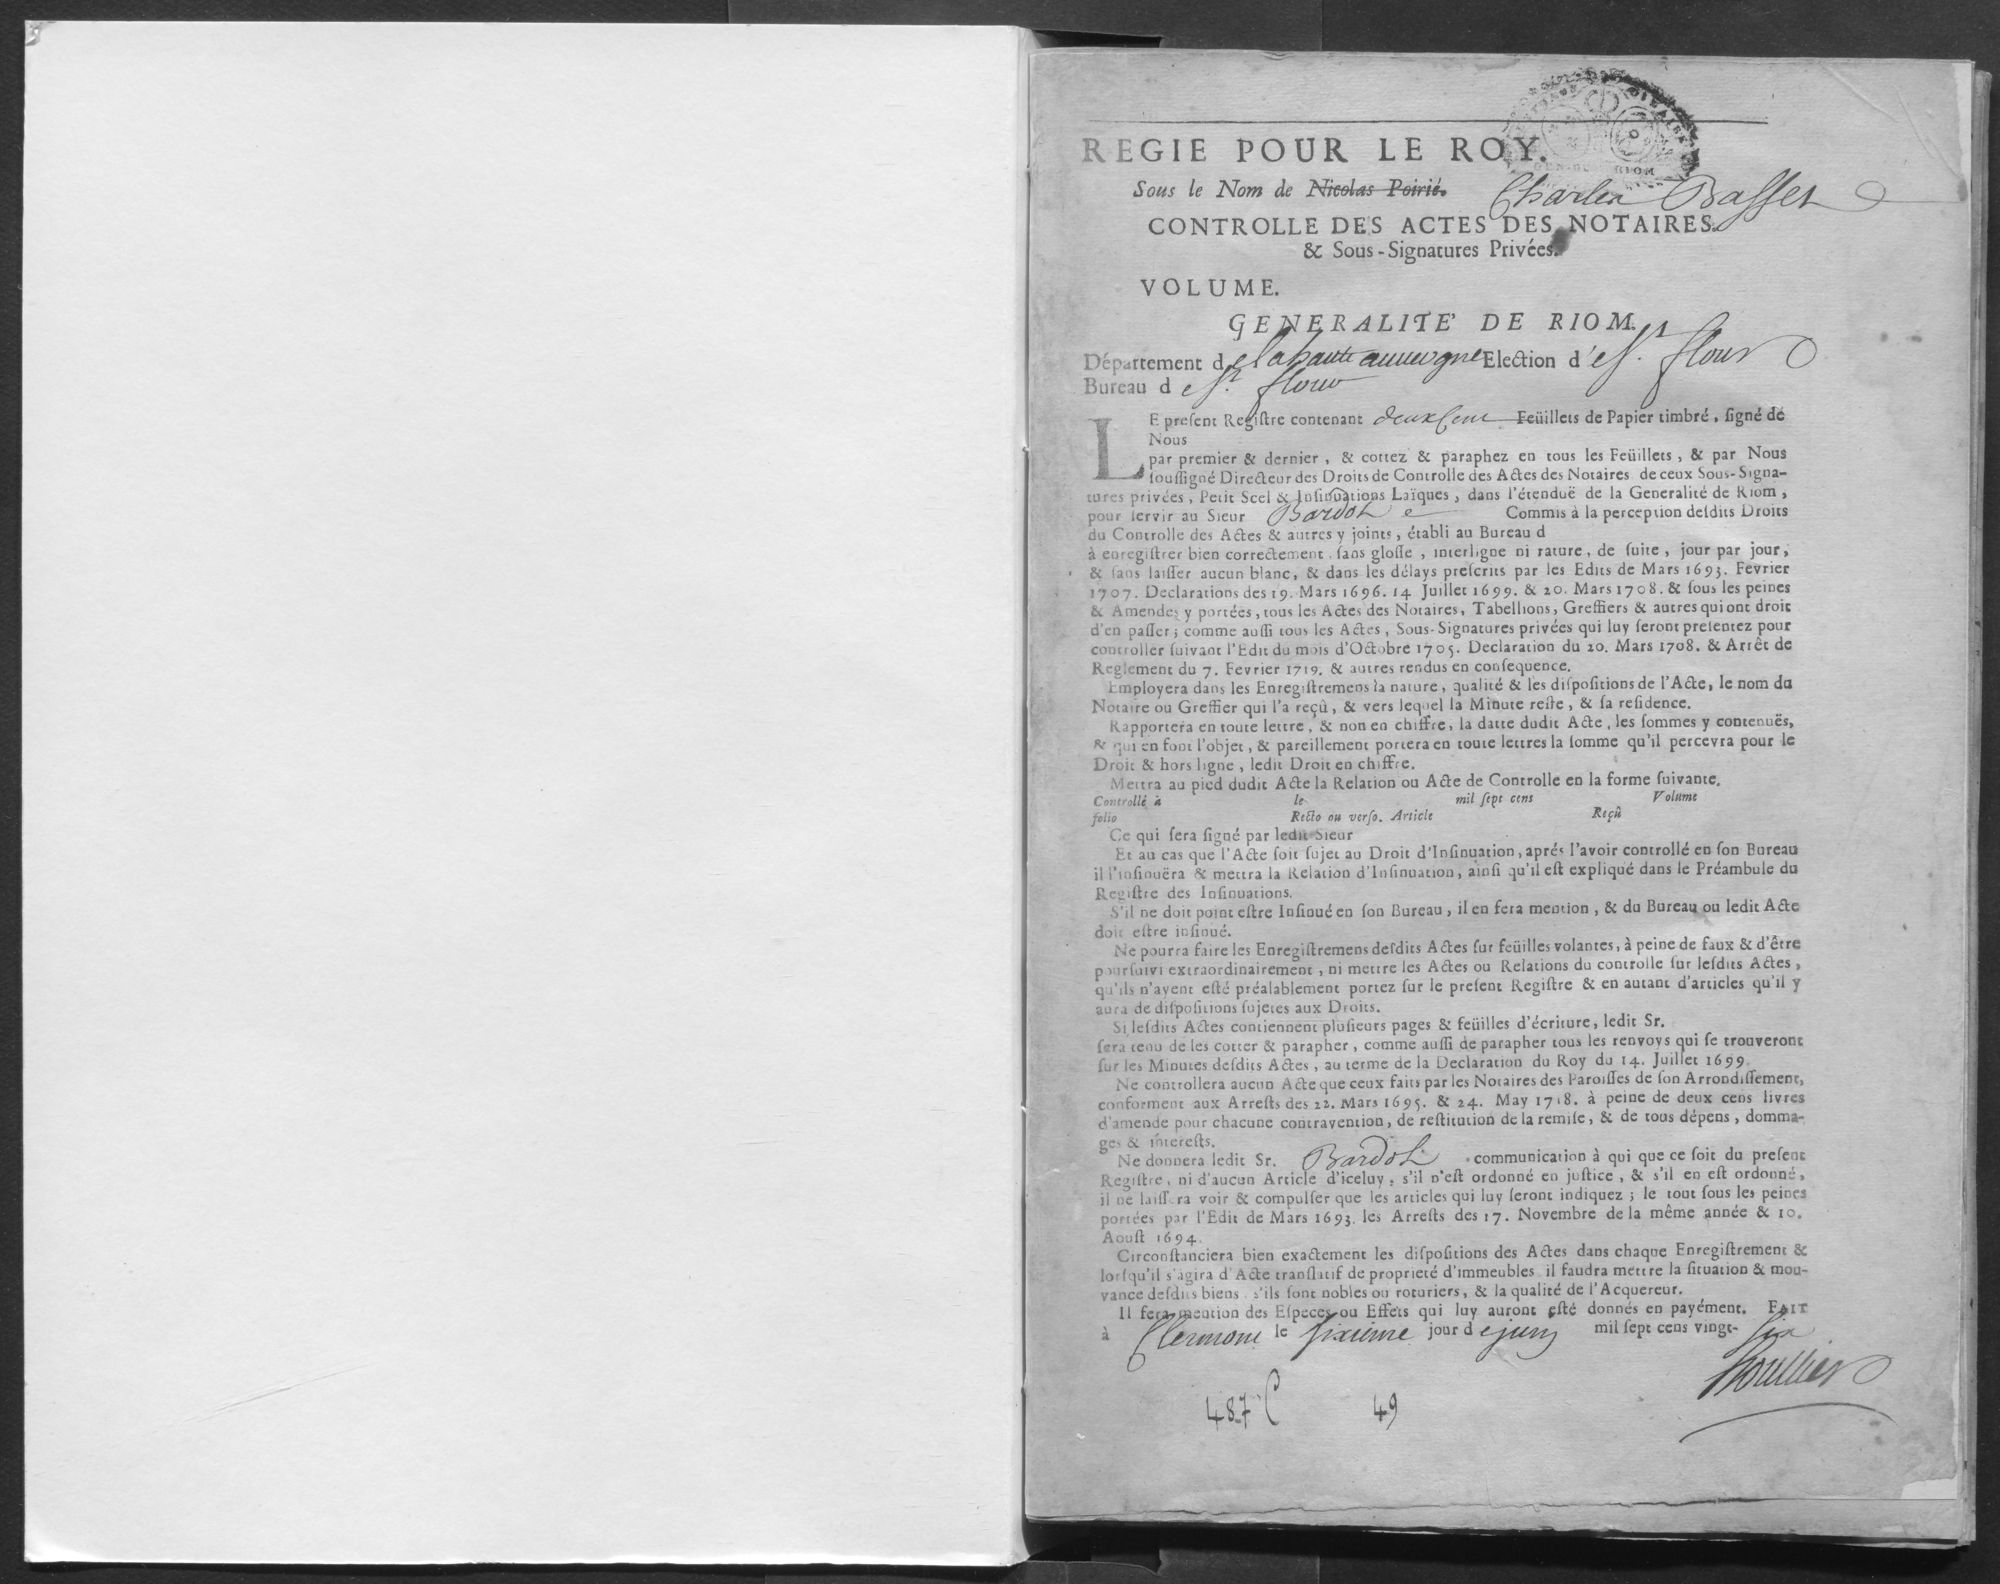 REGIE POUR LE ROY.
Sous le Nom de Nicolas Poirié. Charles Basset
CONTROLLE DES ACTES DES NOTAIRES.
& Sous-Signatures Privées.
VOLUME.
GENERALITE' DE RIOM.
Département de la haute auvergne Election d'e St. flour
Bureau de St. flour
LE preſent Regiſtre contenant deux Cent Feüillets de Papier timbré, ſigné de
Nous
par premier & dernier, & cottez & paraphez en tous les Feüillets, & par Nous
ſouſſigné Directeur des Droits de Controlle des Actes des Notaires de ceux Sous-Signa-
tures privées, Petit Scel & Inſinuations Laïques, dans l'étenduë de la Generalité de Riom,
pour ſervir au Sieur Bardol Commis à la perception deſdits Droits
du Controlle des Actes & autres y joints, établi au Bureau d
à enregiſtrer bien correctement, ſans gloſſe, interligne ni rature, de ſuite, jour par jour,
& ſans laiſſer aucun blanc, & dans les délays preſcrits par les Edits de Mars 1693. Fevrier
1707. Declarations des 19. Mars 1696. 14 Juillet 1699. & 20. Mars 1708. & ſous les peines
& Amendes y portées, tous les Actes des Notaires, Tabellions, Greffiers & autres qui ont droit
d'en paſſer; comme auſſi tous les Actes, Sous-Signatures privées qui luy ſeront preſentez pour
controller ſuivant l'Edit du mois d'Octobre 1705. Declaration du 20. Mars 1708. & Arrêt de
Reglement du 7. Fevrier 1719. & autres rendus en conſequence.
Employera dans les Enregiſtremens la nature, qualité & les diſpoſitions de l'Acte, le nom du
Notaire ou Greffier qui l'a reçû, & vers lequel la Minute reſte, & ſa reſidence.
Rapportera en toute lettre, & non en chiffre, la datte dudit Acte, les ſommes y contenuës,
& qui en font l'objet, & pareillement portera en toute lettres la ſomme qu'il percevra pour le
Droit & hors ligne, ledit Droit en chiffre.
Mettra au pied dudit Acte la Relation ou Acte de Controlle en la forme ſuivante.
Controllé à le mil ſept cens Volume
folio Recto ou verſo. Article Reçû
Ce qui ſera ſigné par ledit Sieur
Et au cas que l'Acte ſoit ſujet au Droit d'Inſinuation, aprés l'avoir controllé en ſon Bureau
il l'inſinuëra & mettra la Relation d'Inſinuation, ainſi qu'il eſt expliqué dans le Préambule du
Regiſtre des Inſinuations.
S'il ne doit point eſtre Inſinué en ſon Bureau, il en fera mention, & du Bureau ou ledit Acte
doit eſtre inſinué.
Ne pourra faire les Enregiſtremens deſdits Actes ſur feüilles volantes, à peine de faux & d'être
pourſuivi extraordinairement, ni mettre les Actes ou Relations du controlle ſur leſdits Actes,
qu'ils n'ayent eſté préalablement portez ſur le preſent Regiſtre & en autant d'articles qu'il y
aura de diſpoſitions ſujetes aux Droits.
Si leſdits Actes contiennent pluſieurs pages & feüilles d'écriture, ledit Sr.
ſera tenu de les cotter & parapher, comme auſſi de parapher tous les renvoys qui ſe trouveront
ſur les Minutes deſdits Actes, au terme de la Declaration du Roy du 14. Juillet 1699.
Ne controllera aucun Acte que ceux faits par les Notaires des Paroiſſes de ſon Arrondiſſement,
conforment aux Arreſts des 22. Mars 1695. & 24. May 1718. à peine de deux cens livres
d'amende pour chacune contravention, de reſtitution de la remiſe, & de tous dépens, domma-
ges & intereſts.
Ne donnera ledit Sr. Bardol communication à qui que ce ſoit du preſent
Regiſtre, ni d'aucun Article d'iceluy, s'il n'eſt ordonné en juſtice, & s'il en eſt ordonné,
il ne laiſſera voir & compulſer que les articles qui luy ſeront indiquez; le tout ſous les peines
portées par l'Edit de Mars 1693. les Arreſts des 17. Novembre de la même année & 10.
Aouſt 1694.
Circonſtanciera bien exactement les diſpoſitions des Actes dans chaque Enregiſtrement &
lorſqu'il s'agira d'Acte tranſlatif de proprieté d'immeubles il faudra mettre la ſituation & mou-
vance deſdits biens, s'ils ſont nobles ou roturiers, & la qualité de l'Acquereur.
Il fera mention des Eſpeces ou Effets qui luy auront eſté donnés en payément. FAIT
à Clermont le ſixieme jour de juin mil ſept cens vingt-ſix
487 C 49